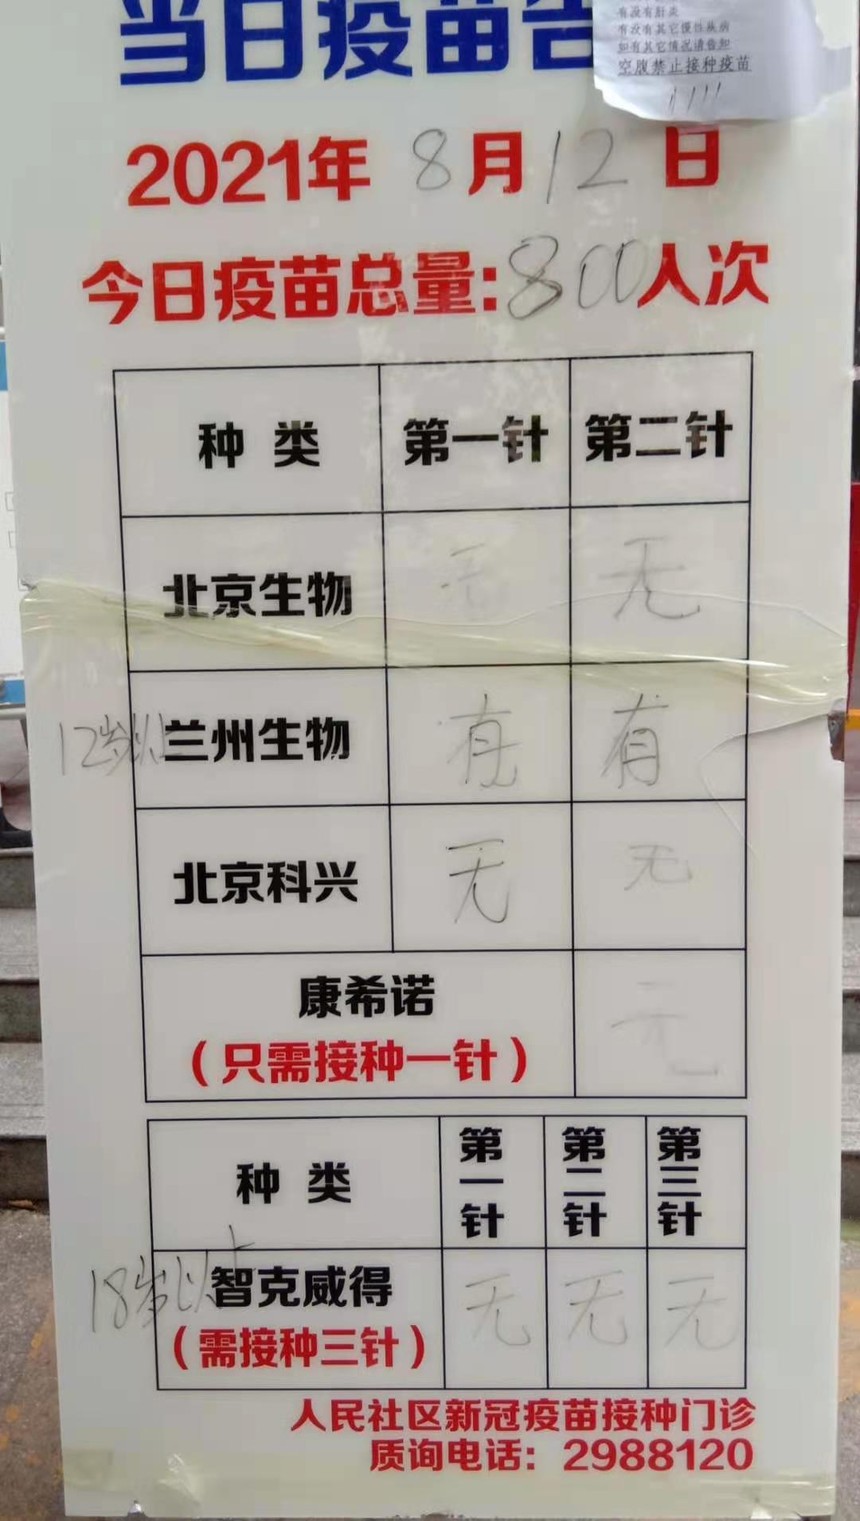 有没有肝炎
有没有其它慢性疾病
如有其它情况请告知
空腹禁止接种疫苗
当日疫苗告
2021年 8月12日
今日疫苗总量:800人次
种类 第一针 第二针
北京生物 无 无
12岁以上 兰州生物 有 有
北京科兴 无 无
康希诺 无
(只需接种一针)
种类 第一针 第二针 第三针
18岁以上 智克威得 无 无 无
(需接种三针)
人民社区新冠疫苗接种门诊
质询电话: 2988120